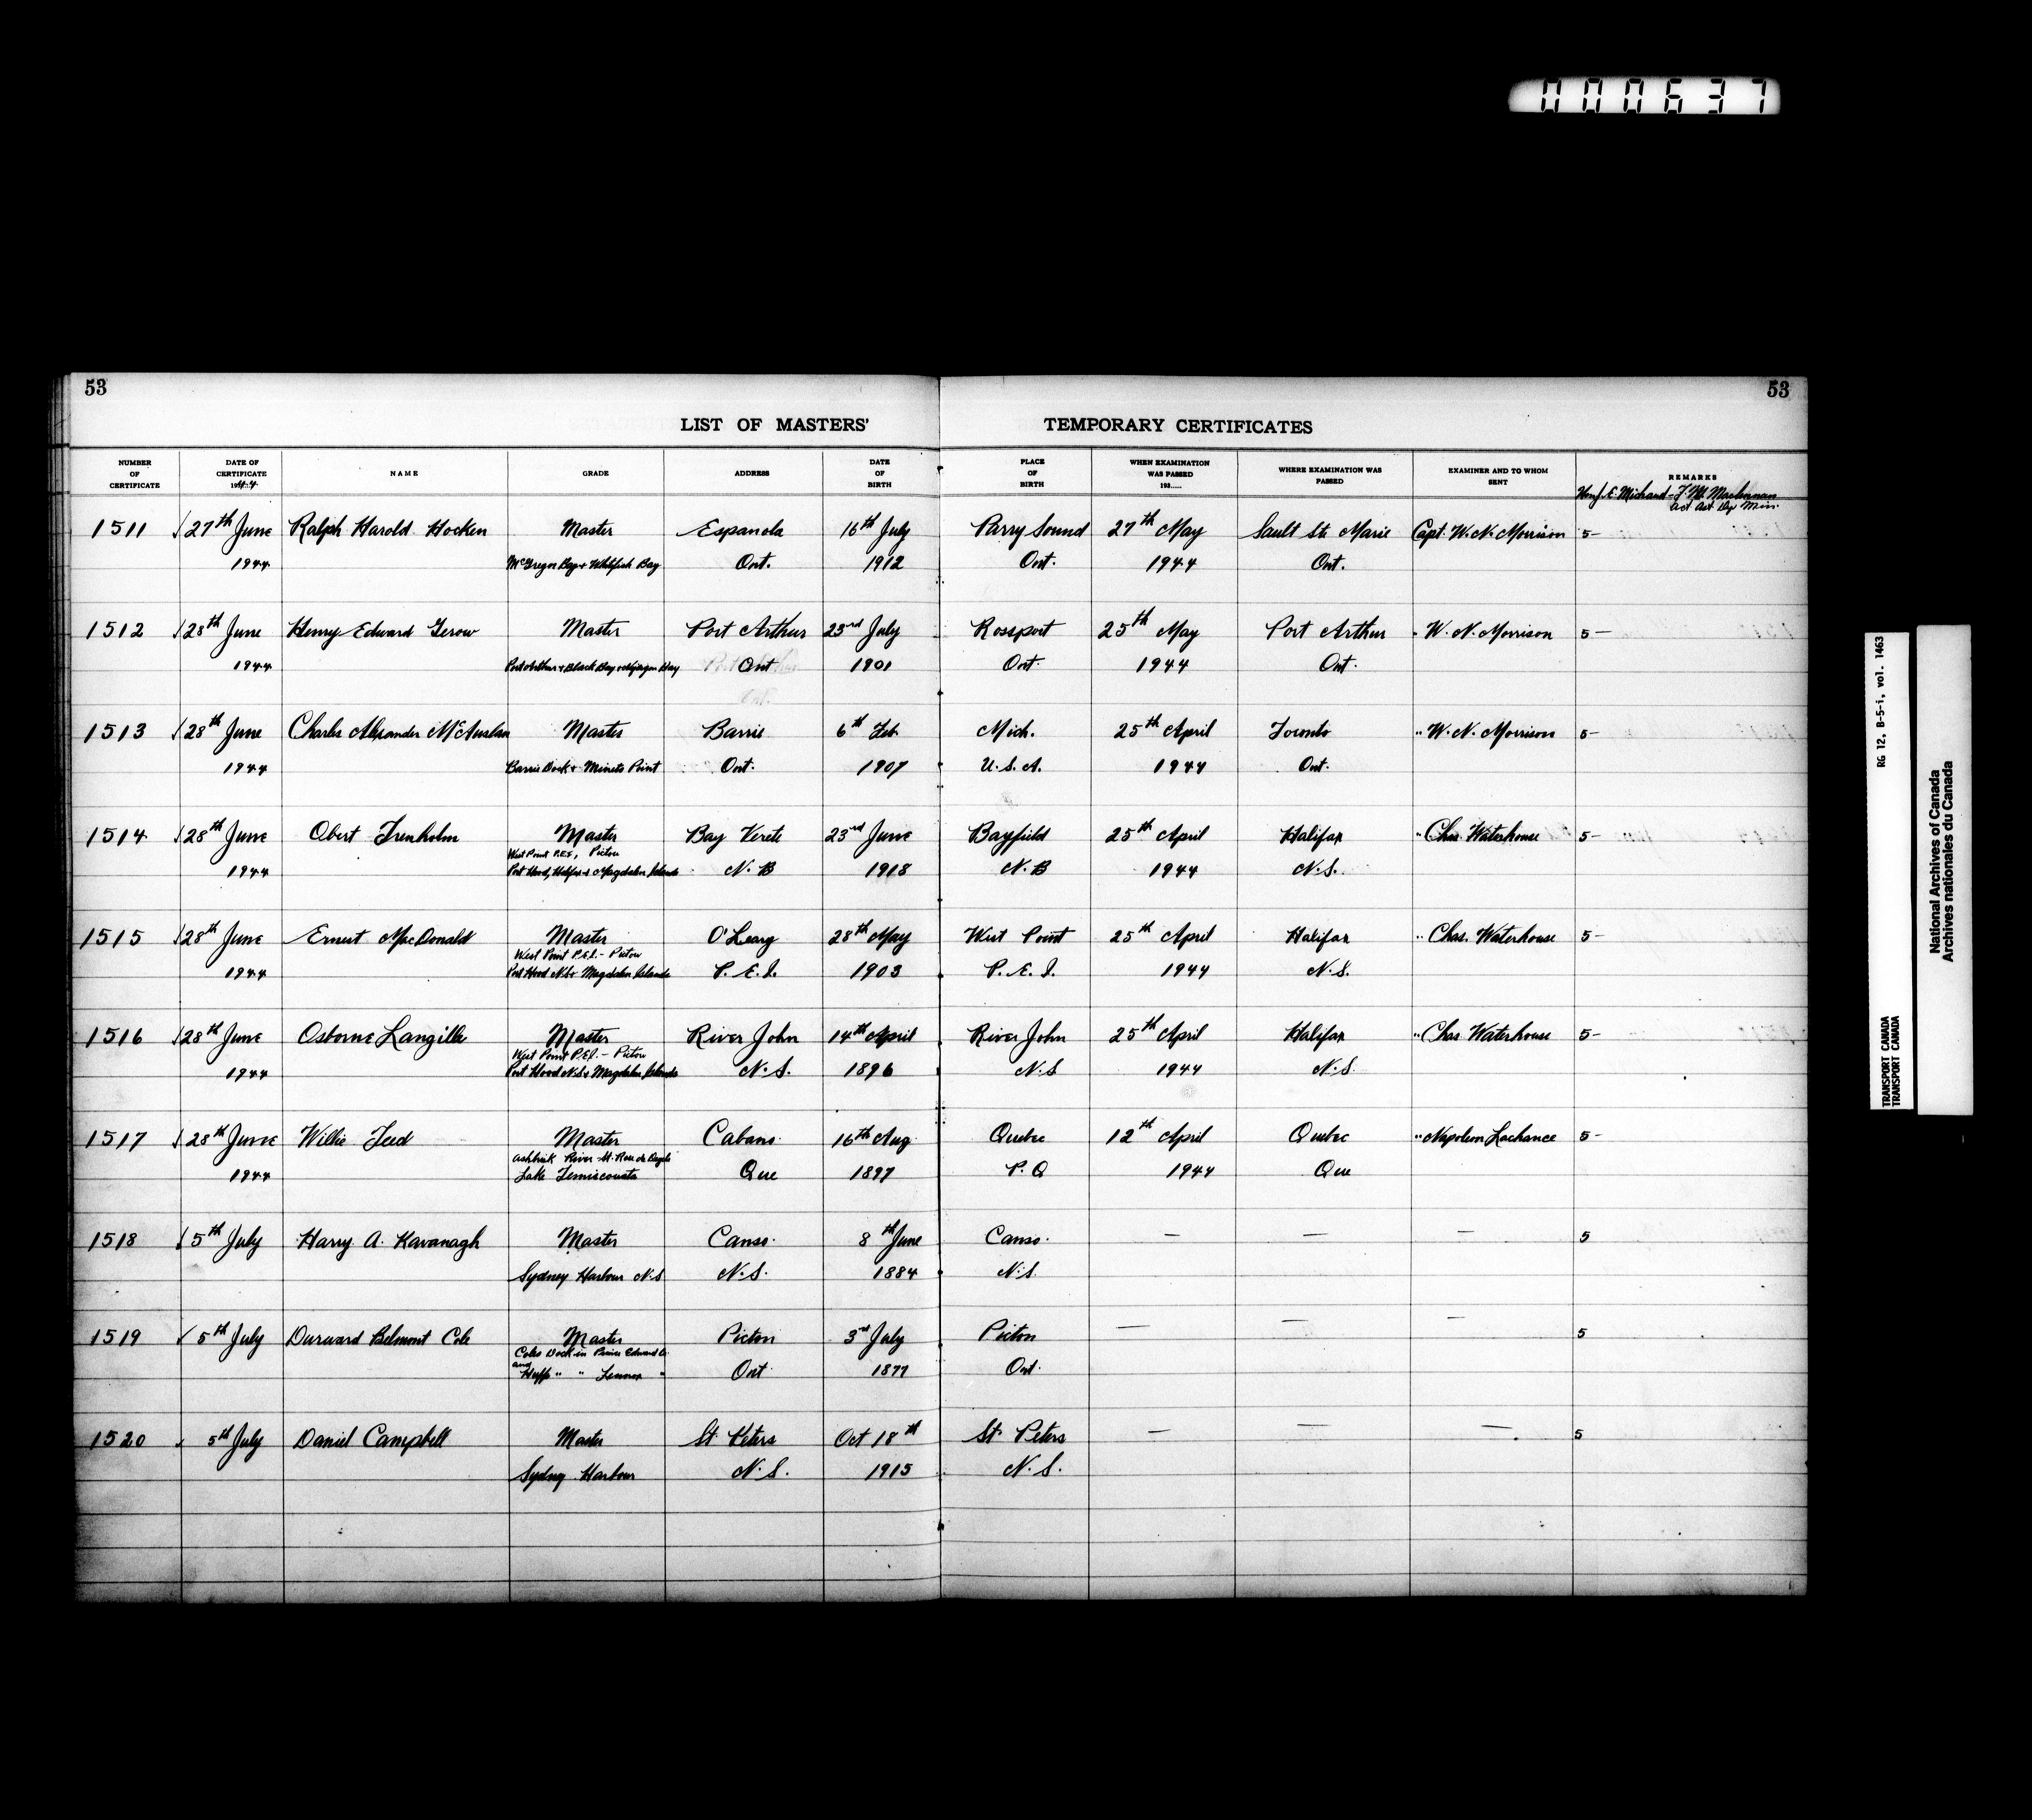 000637
53
53
LIST OF MASTERS' TEMPORARY CERTIFICATES
NUMBER OF CERTIFICATE
DATE OF CERTIFICATE 1944
NAME
GRADE
ADDRESS
DATE OF BIRTH
PLACE OF BIRTH
WHEN EXAMINATION WAS PASSED 193
WHERE EXAMINATION WAS PASSED
EXAMINER AND TO WHOM SENT
REMARKS
Honj. E. Michaud - Act Dep Min.
1511 27th June Ralph Harold Hocken Master Espanola 16th July Parry Sound 27th May Sault Ste Marie Capt. W. N. Morrison 5-
1944 McGregor Bay + Whitefish Bay Ont. 1912 Ont. 1944 Ont.
1512 28th June Henry Edward Gerow Master Port Arthur 23rd July Rossport 25th May Port Arthur " W. N. Morrison 5-
1944 Port Arthur + Black Bay + Bay Ont 1901 Ont. 1944 Ont.
1513 28th June Charles Alexander McAuslan Master Barrie 6th Feb. Mich. 25th April Toronto " W. N. Morrison 5-
1944 Barrie Dock + Minets Point Ont. 1907 U.S.A. 1944 Ont.
1514 28th June Obert Trenholm Master Bay Verete 23rd June Bayfield 25th April Halifax " Chas. Waterhouse 5-
West Point P.E.I., Pictou
1944 Port Hood, Halifax + Magdalen Islands N.B 1918 N.B 1944 N.S.
1515 28th June Ernest MacDonald Master O'Leary 28th May West Point 25th April Halifax " Chas. Waterhouse 5-
West Point P.E.I. - Pictou
1944 Port Hood N.S + Magdalen Islands P.E.I. 1903 P.E.I. 1944 N.S.
1516 28th June Osborne Langille Master River John 14th April River John 25th April Halifax " Chas Waterhouse 5-
West Point P.E.I. - Pictou
1944 Port Hood N.S + Magdalen Islands N.S. 1896 N.S 1944 N.S.
1517 28th June Willie Master Cabano 16th Aug. Quebec 12th April Quebec " Napoleon Lachance 5-
River St. Rose du
1944 Lake Temiscouata Que 1897 P.Q 1944 Que
1518 5th July Harry A. Kavanagh Master Canso. 8th June Canso. — — — 5
Sydney Harbour N.S N.S. 1884 N.S.
1519 5th July Durward Belmont Cole Master Picton 3rd July Picton — — — 5
Coles Dock in Prince Edward Co.
and
Huffs " " Lennox " Ont 1877 Ont.
1520 5th July Daniel Campbell Master St. Peters Oct 18th St. Peters — — — 5
Sydney Harbour N.S. 1915 N.S.
RG 12, B-5-i, vol. 1463
TRANSPORT CANADA
TRANSPORT CANADA
National Archives of Canada
Archives nationales du Canada